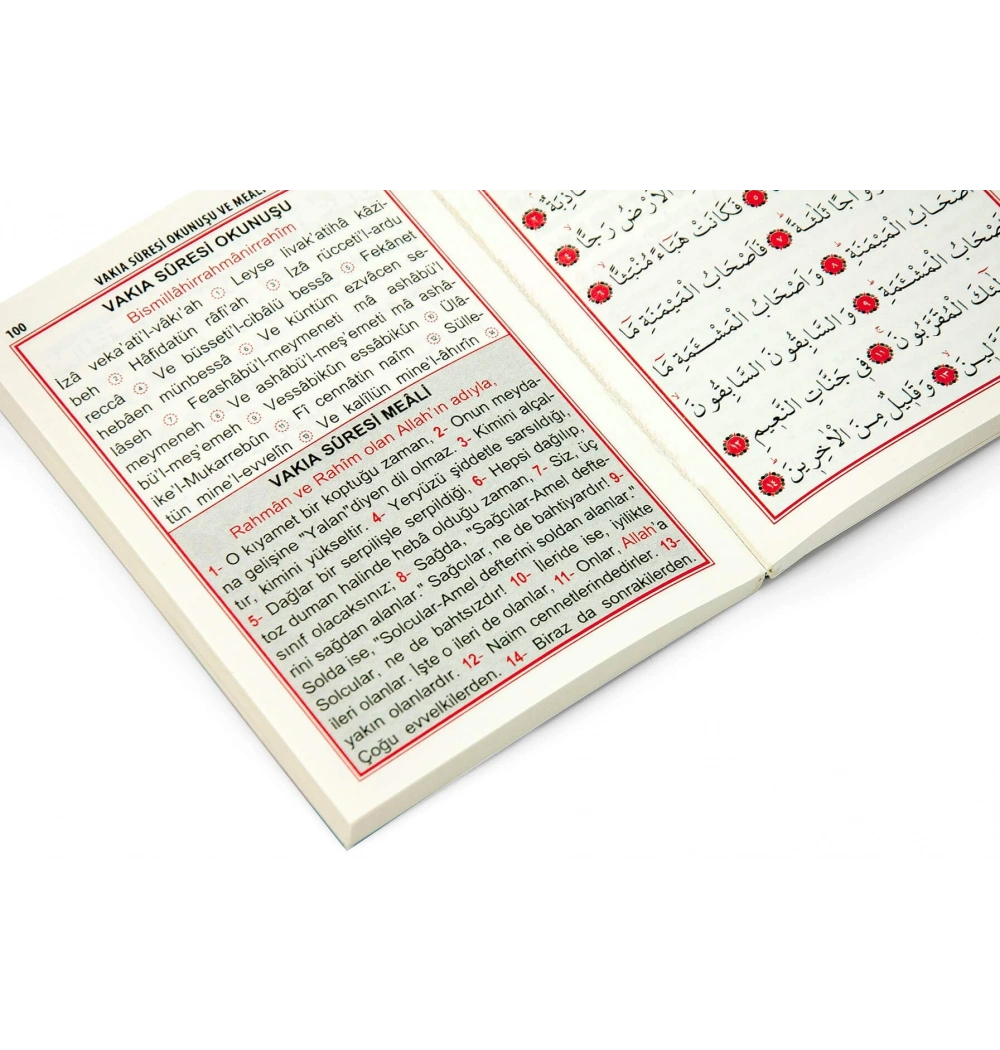 100
VAKIA SÛRESİ OKUNUŞU VE MEÂLİ
VAKIA SÛRESİ OKUNUŞU
Bismillâhirrahmânirrahîm
İzâ veka'ati'l-vâkı'ah ① Leyse livak'atihâ kâzi-
beh ② Hâfidatün râfi'ah ③ İzâ rücceti'l-ardu
reccâ ④ Ve büsseti'l-cibâlü bessâ ⑤ Fekânet
hebâen münbessâ ⑥ Ve küntüm ezvâcen se-
lâseh ⑦ Feashâbü'l-meymeneti mâ ashâbü'l
meymeneh ⑧ Ve ashâbü'l-meş'emeti mâ ashâ-
bü'l-meş'emeh ⑨ Vessâbikûn essâbikûn ⑩ Ülâ-
ike'l-Mukarrebûn ⑪ Fî cennâtin naîm ⑫ Sülle-
tün mine'l-evvelîn ⑬ Ve kalîlün mine'l-âhırîn ⑭
VAKIA SÛRESİ MEÂLİ
Rahmân ve Rahîm olan Allah'ın adıyla,
1- O kıyamet bir koptuğu zaman, 2- Onun meyda-
na gelişine "Yalan"diyen dil olmaz. 3- Kimini alçal-
tır, kimini yükseltir. 4- Yeryüzü şiddetle sarsıldığı,
5- Dağlar bir serpilişle serpildiği, 6- Hepsi dağılıp
toz duman halinde hebâ olduğu zaman, 7- Siz, üç
sınıf olacaksınız; 8- Sağda, "Sağcılar-Amel defte-
rini sağdan alanlar." Sağcılar, ne de bahtiyardır! 9-
Solda ise, "Solcular-Amel defterini soldan alanlar."
Solcular, ne de bahtsızdır! 10- İleride ise, iyilikte
ileri olanlar. İşte o ileri de olanlar, 11- Onlar, Allah'a
yakın olanlardır. 12- Naim cennetlerindedirler. 13-
Çoğu evvelkilerden. 14- Biraz da sonrakilerden.
الْاَرْضُ رَجًّا ﴿٤﴾
﴿٥﴾ فَكَانَتْ هَبَٓاءً مُنْبَثًّا ﴿٦﴾
ثَلٰثَةً ﴿٧﴾ فَاَصْحَابُ الْمَيْمَنَةِ مَٓا
اَصْحَابُ الْمَيْمَنَةِ ﴿٨﴾ وَاَصْحَابُ الْمَشْـَٔمَةِ مَٓا
اَصْحَابُ الْمَشْـَٔمَةِ ﴿٩﴾ وَالسَّابِقُونَ السَّابِقُونَ
الْمُقَرَّبُونَ ﴿١١﴾ فِي جَنَّاتِ النَّعِيمِ ﴿١٢﴾
﴿١٣﴾ وَقَلِيلٌ مِنَ الْاٰخِرِينَ ﴿١٤﴾